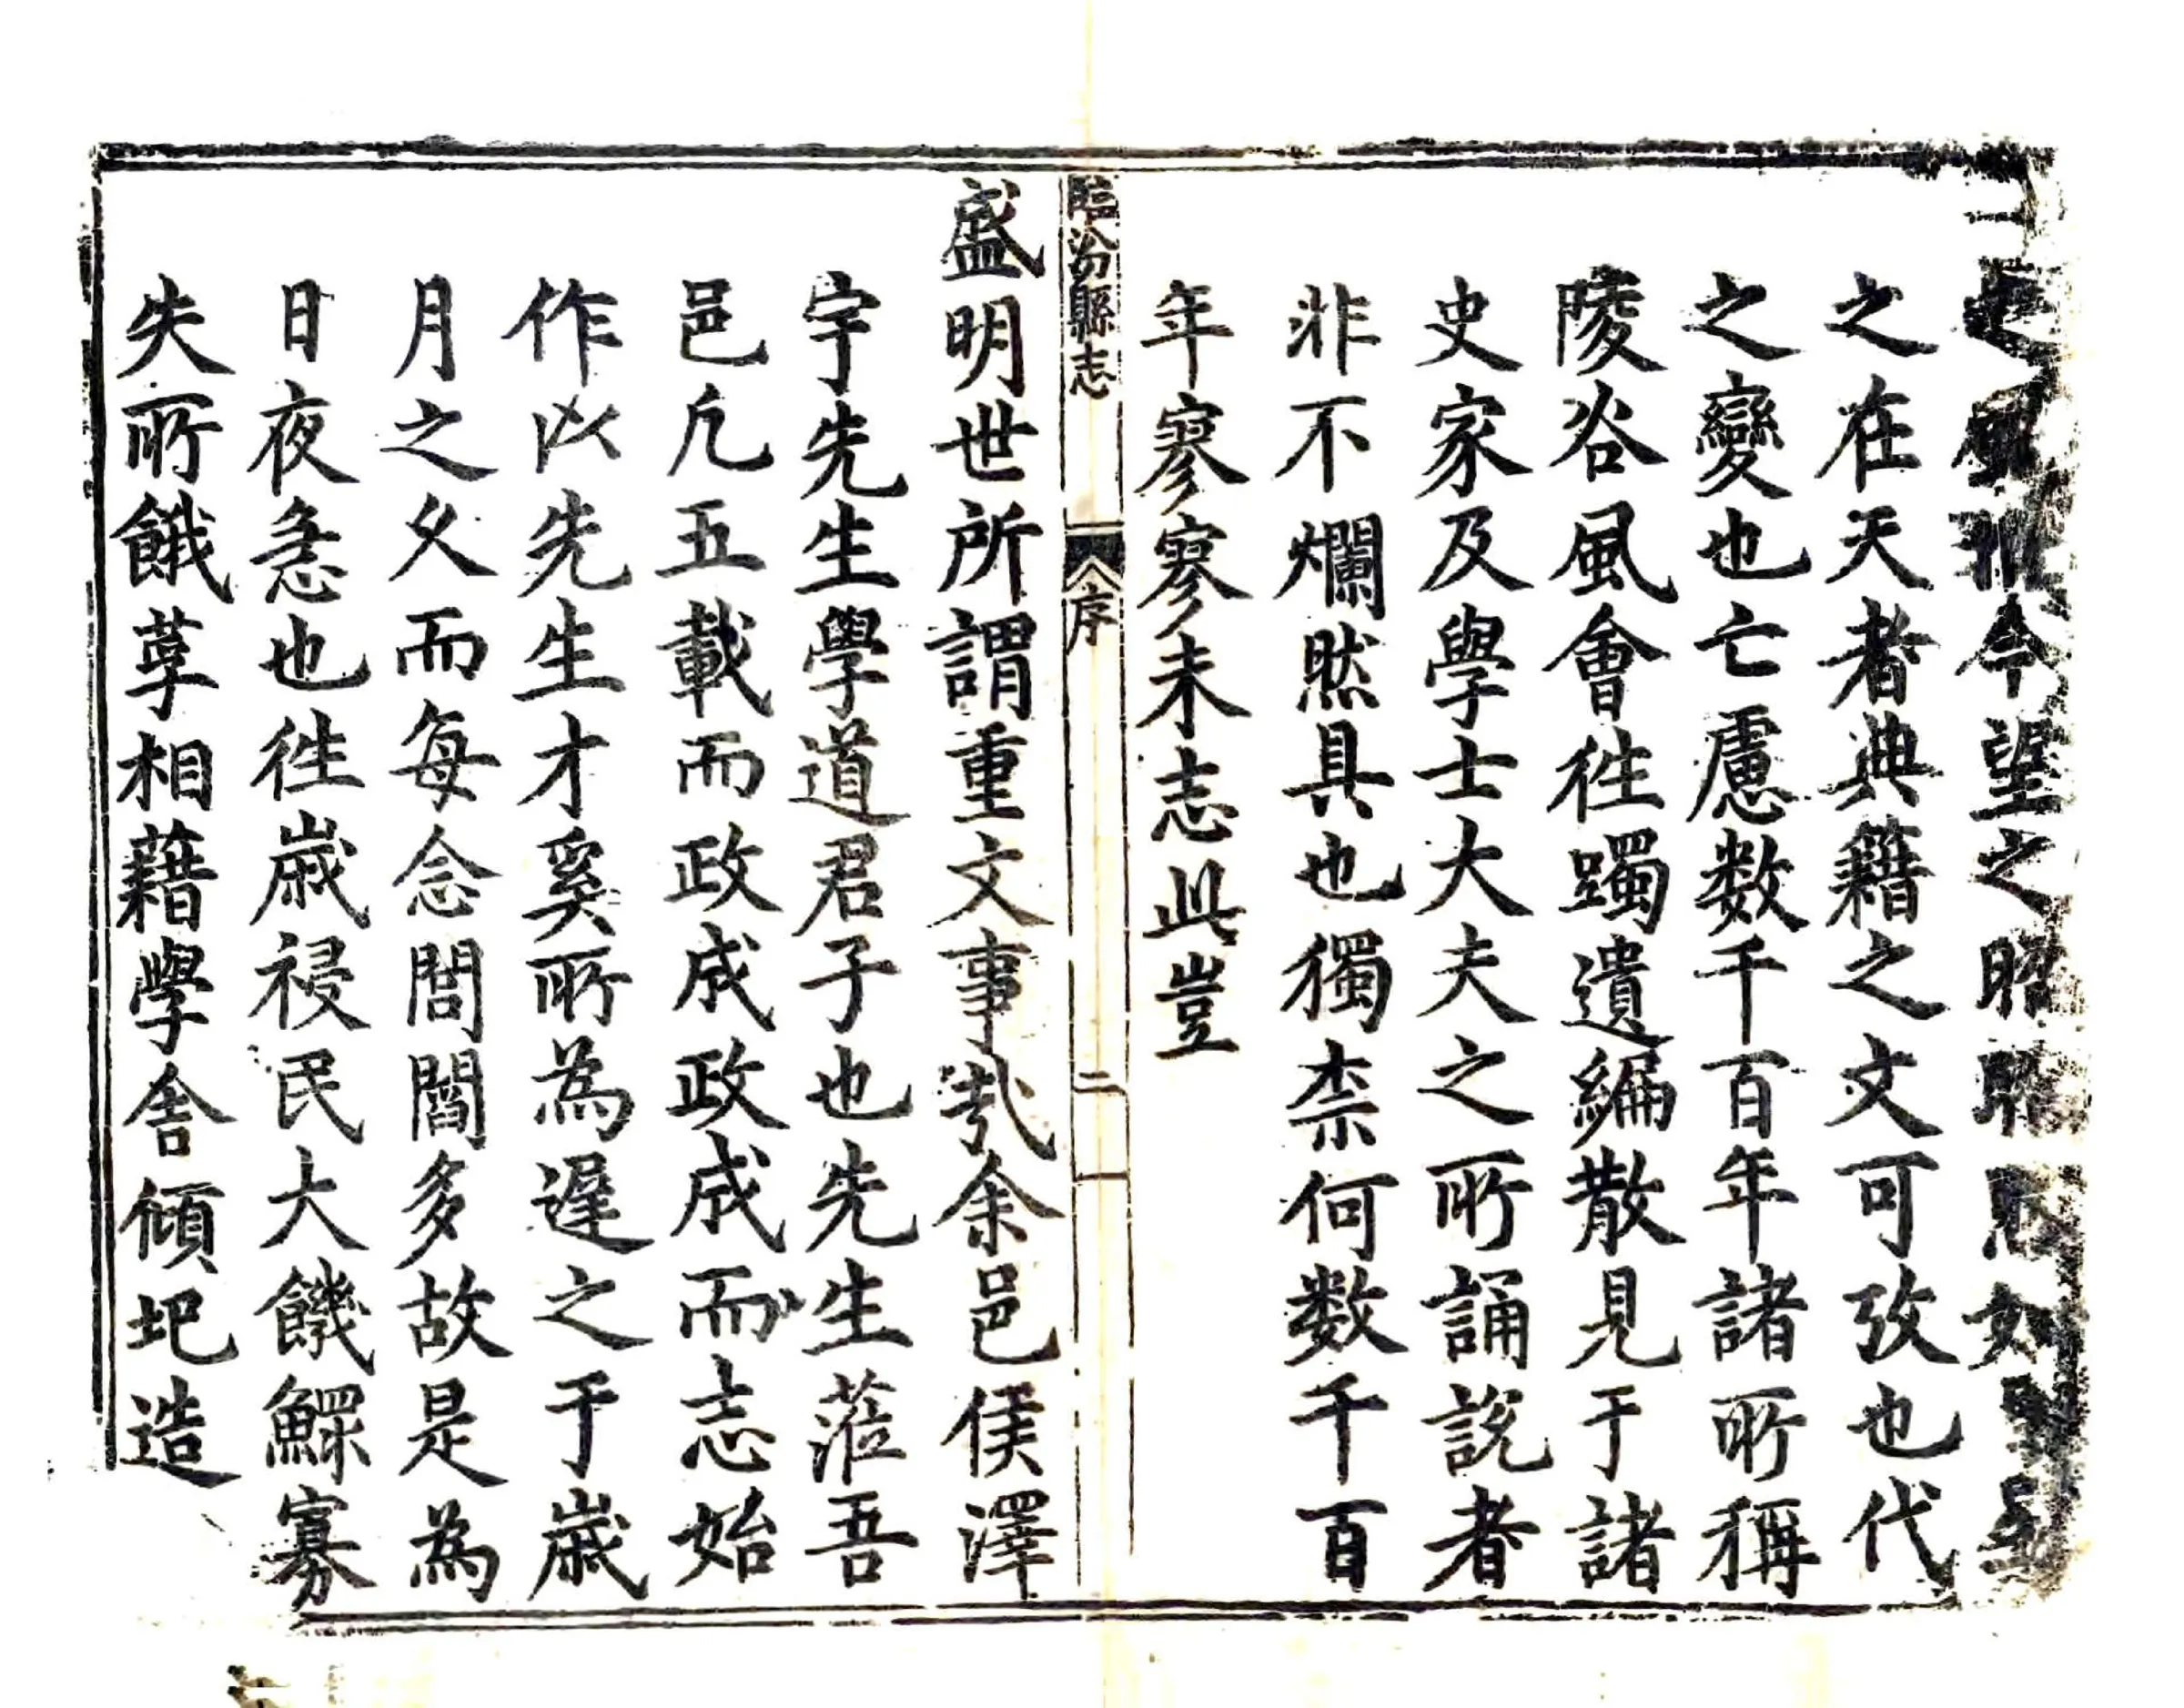 今望之昭如
之在天者典籍之文可攷也代
之變也亡慮数千百年諸所稱
陵谷風會徃躅遺編散見于諸
史家及學士大夫之所誦説者
非不爛然具也獨柰何数千百
年寥寥未志此豈
臨汾縣志
序
二
盛明世所謂重文事㢤余邑侯澤
宇先生學道君子也先生蒞吾
邑凢五載而政成政成而志始
作此先生才奚所為遲之于歲
月之久而每念閭閻多故是為
日夜急也徃歲祲民大饑鰥寡
失所餓莩相藉學舍傾圯造